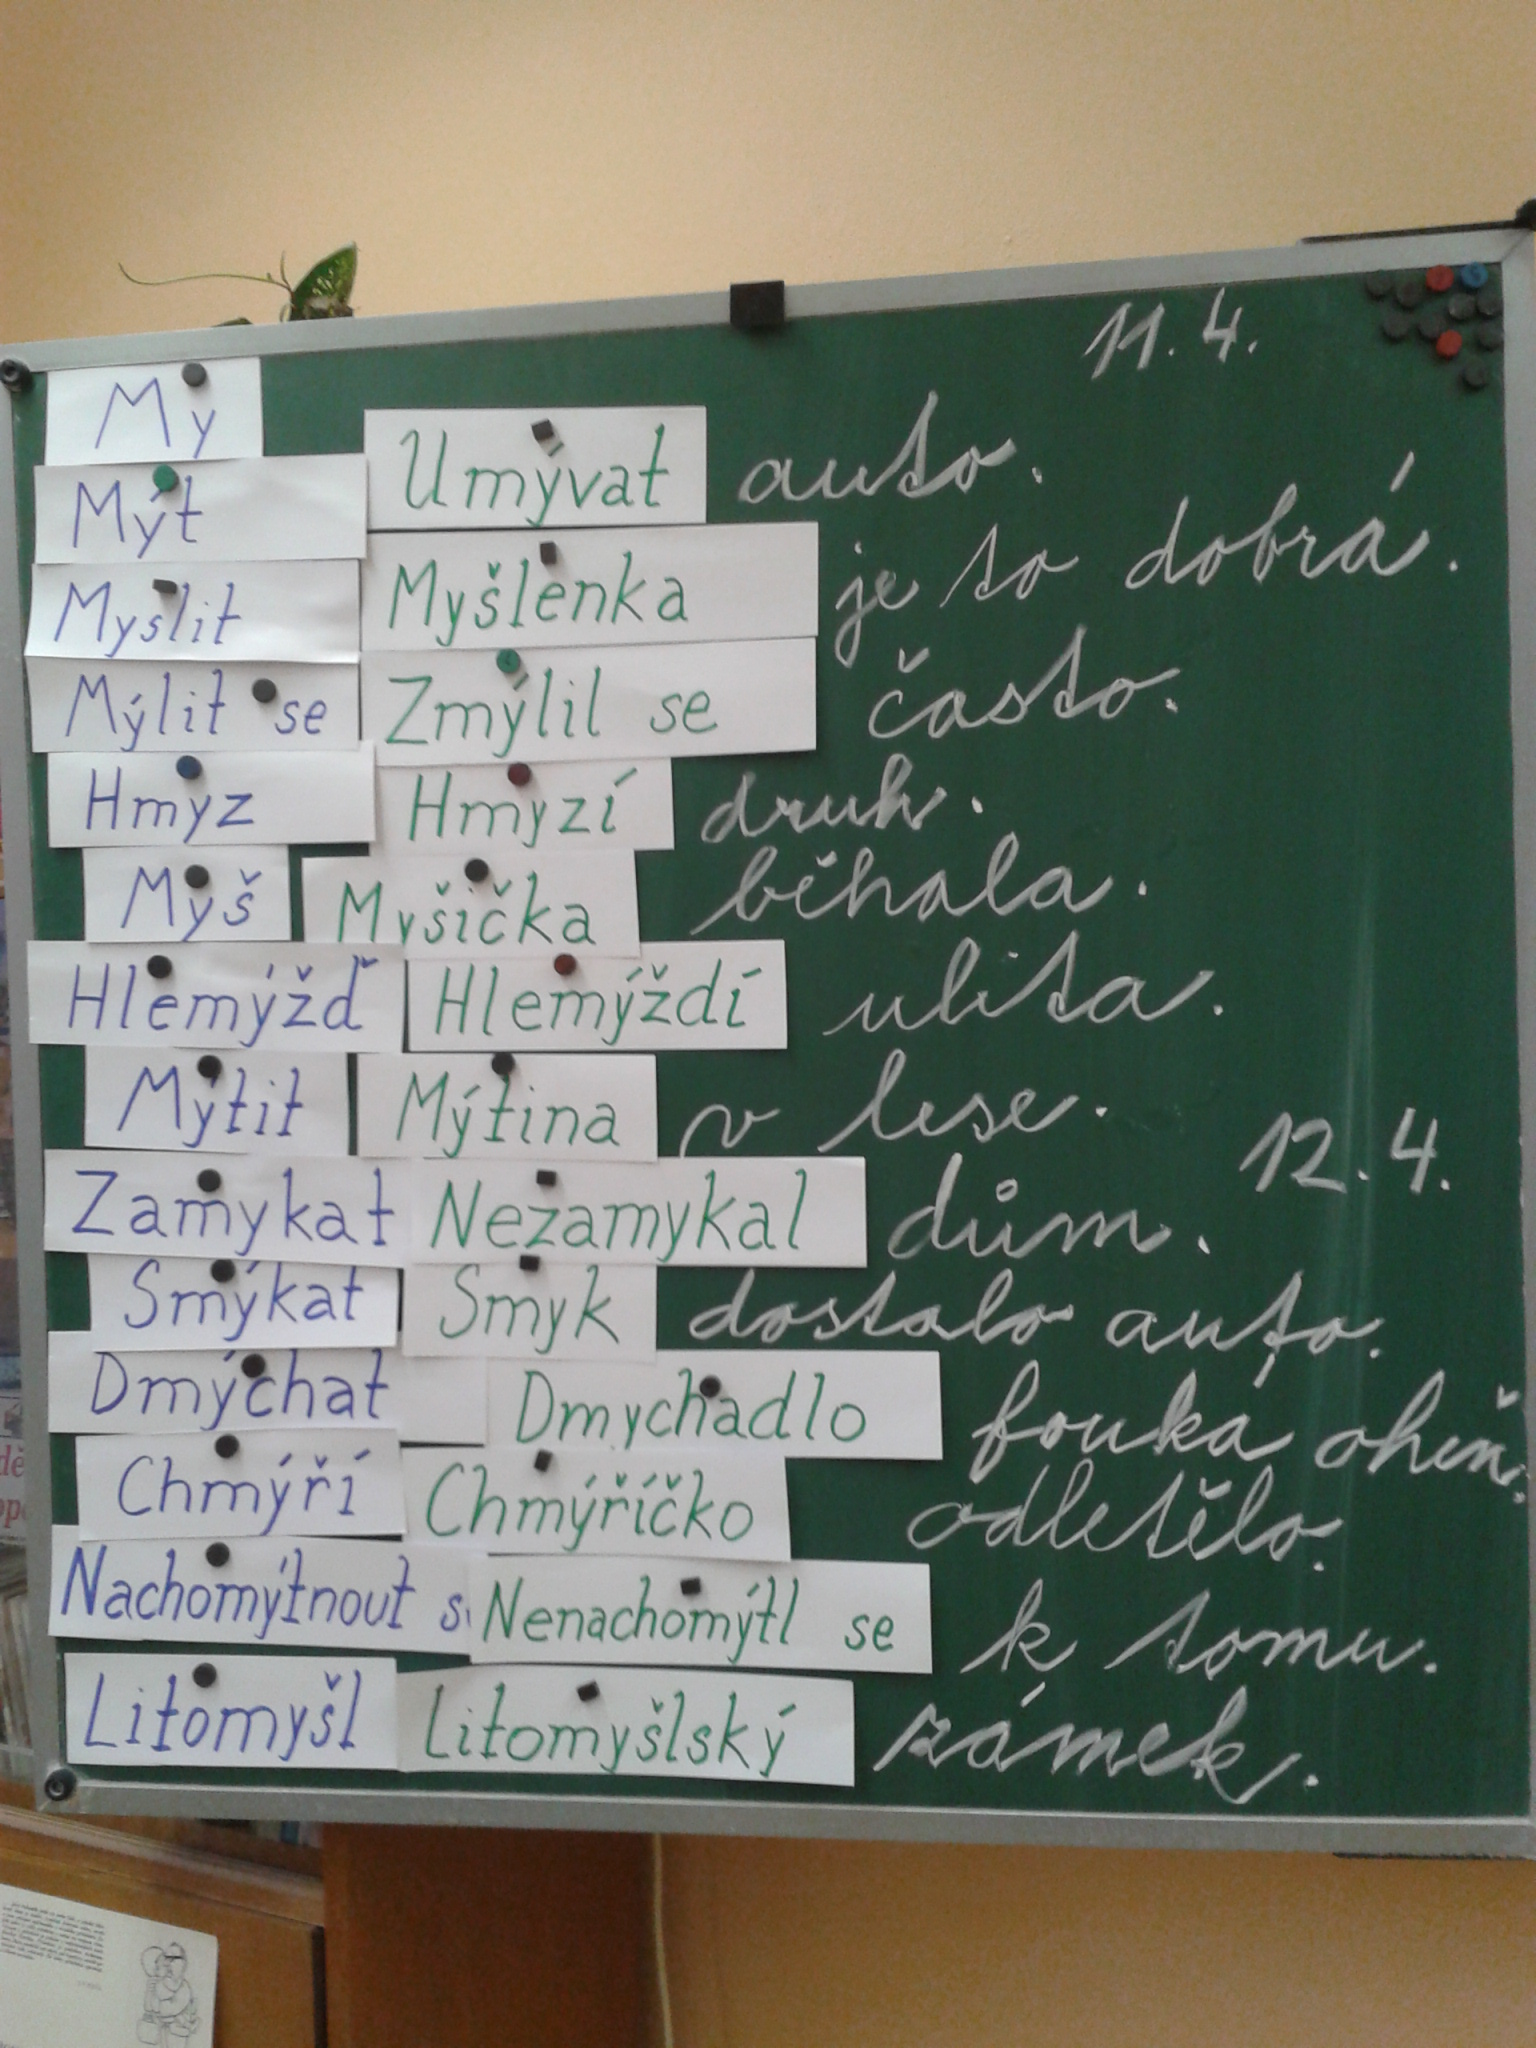 11. 4.
My
Mýt Umývat auto.
Myslit Myšlenka je to dobrá.
Mýlit se Zmýlil se často.
Hmyz Hmyzí druh.
Myš Myšička běhala.
Hlemýžď Hlemýždí ulita.
Mýtit Mýtina v lese.
12. 4.
Zamykat Nezamykal dům.
Smýkat Smyk dostalo auto.
Dmýchat Dmychadlo fouká oheň.
Chmýří Chmýříčko odletělo.
Nachomýtnout s Nenachomýtl se k tomu.
Litomyšl Litomyšlský zámek.